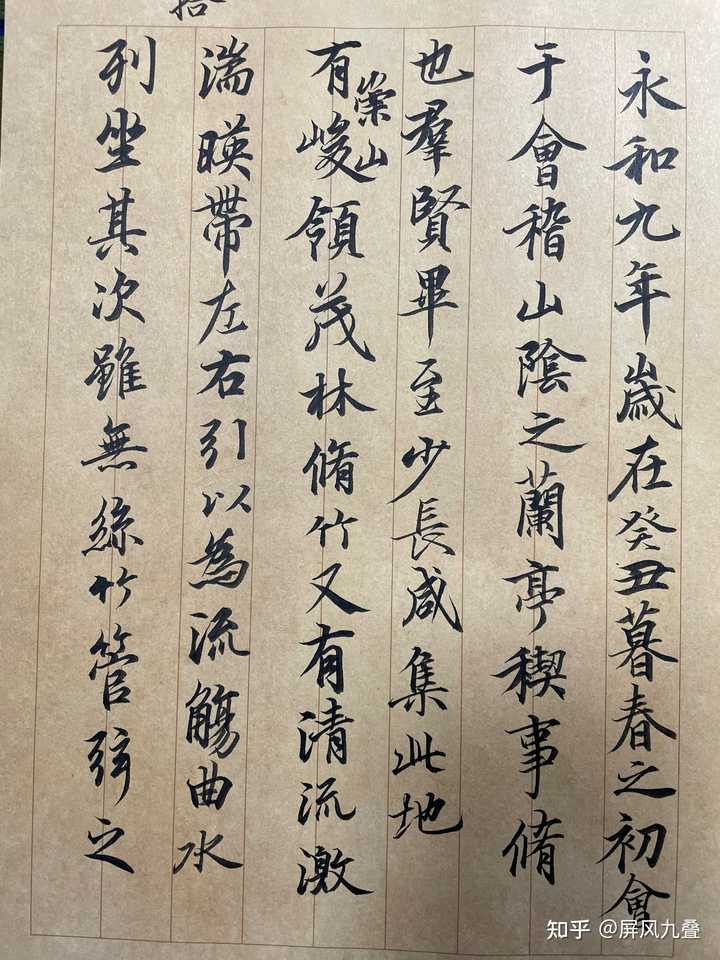 永和九年歲在癸丑暮春之初會
于會稽山陰之蘭亭稧事脩
也羣賢畢至少長咸集此地
有崇山峻領茂林脩竹又有清流激
湍暎帶左右引以為流觴曲水
列坐其次雖無絲竹管弦之
知乎 @屏风九叠